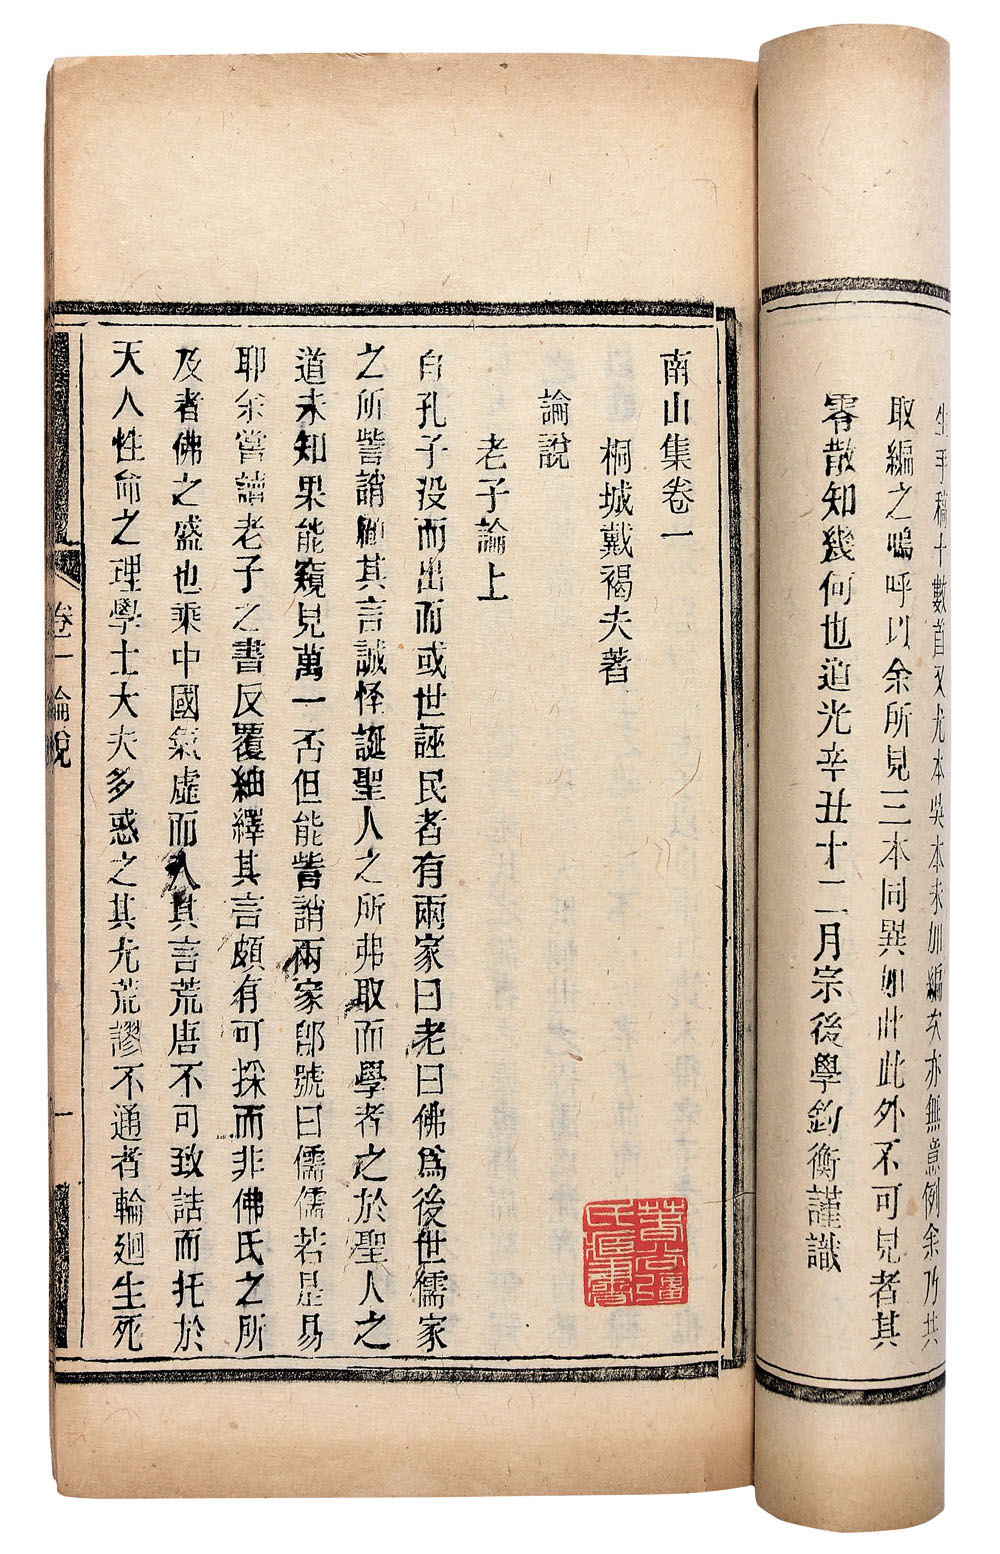 生手稿十數首又尤本吳本未加編次亦無意例余乃共
取編之嗚呼以余所見三本同異如此此外不可見者其
零散知幾何也道光辛丑十二月宗後學鈞衡謹識
南山集卷一
桐城戴褐夫著
論說
老子論上
自孔子没而出而或世誣民者有兩家曰老曰佛爲後世儒家
之所訾誚顧其言誠怪誕聖人之所弗取而學者之於聖人之
道未知果能窺見萬一否但能訾誚兩家卽號曰儒儒若是易
耶余嘗讀老子之書反覆紬繹其言頗有可採而非佛氏之所
及者佛之盛也乘中國氣虛而入其言荒唐不可致詰而托於
天人性命之理學士大夫多惑之其尤荒謬不通者輪迴生死
卷一 論說
一